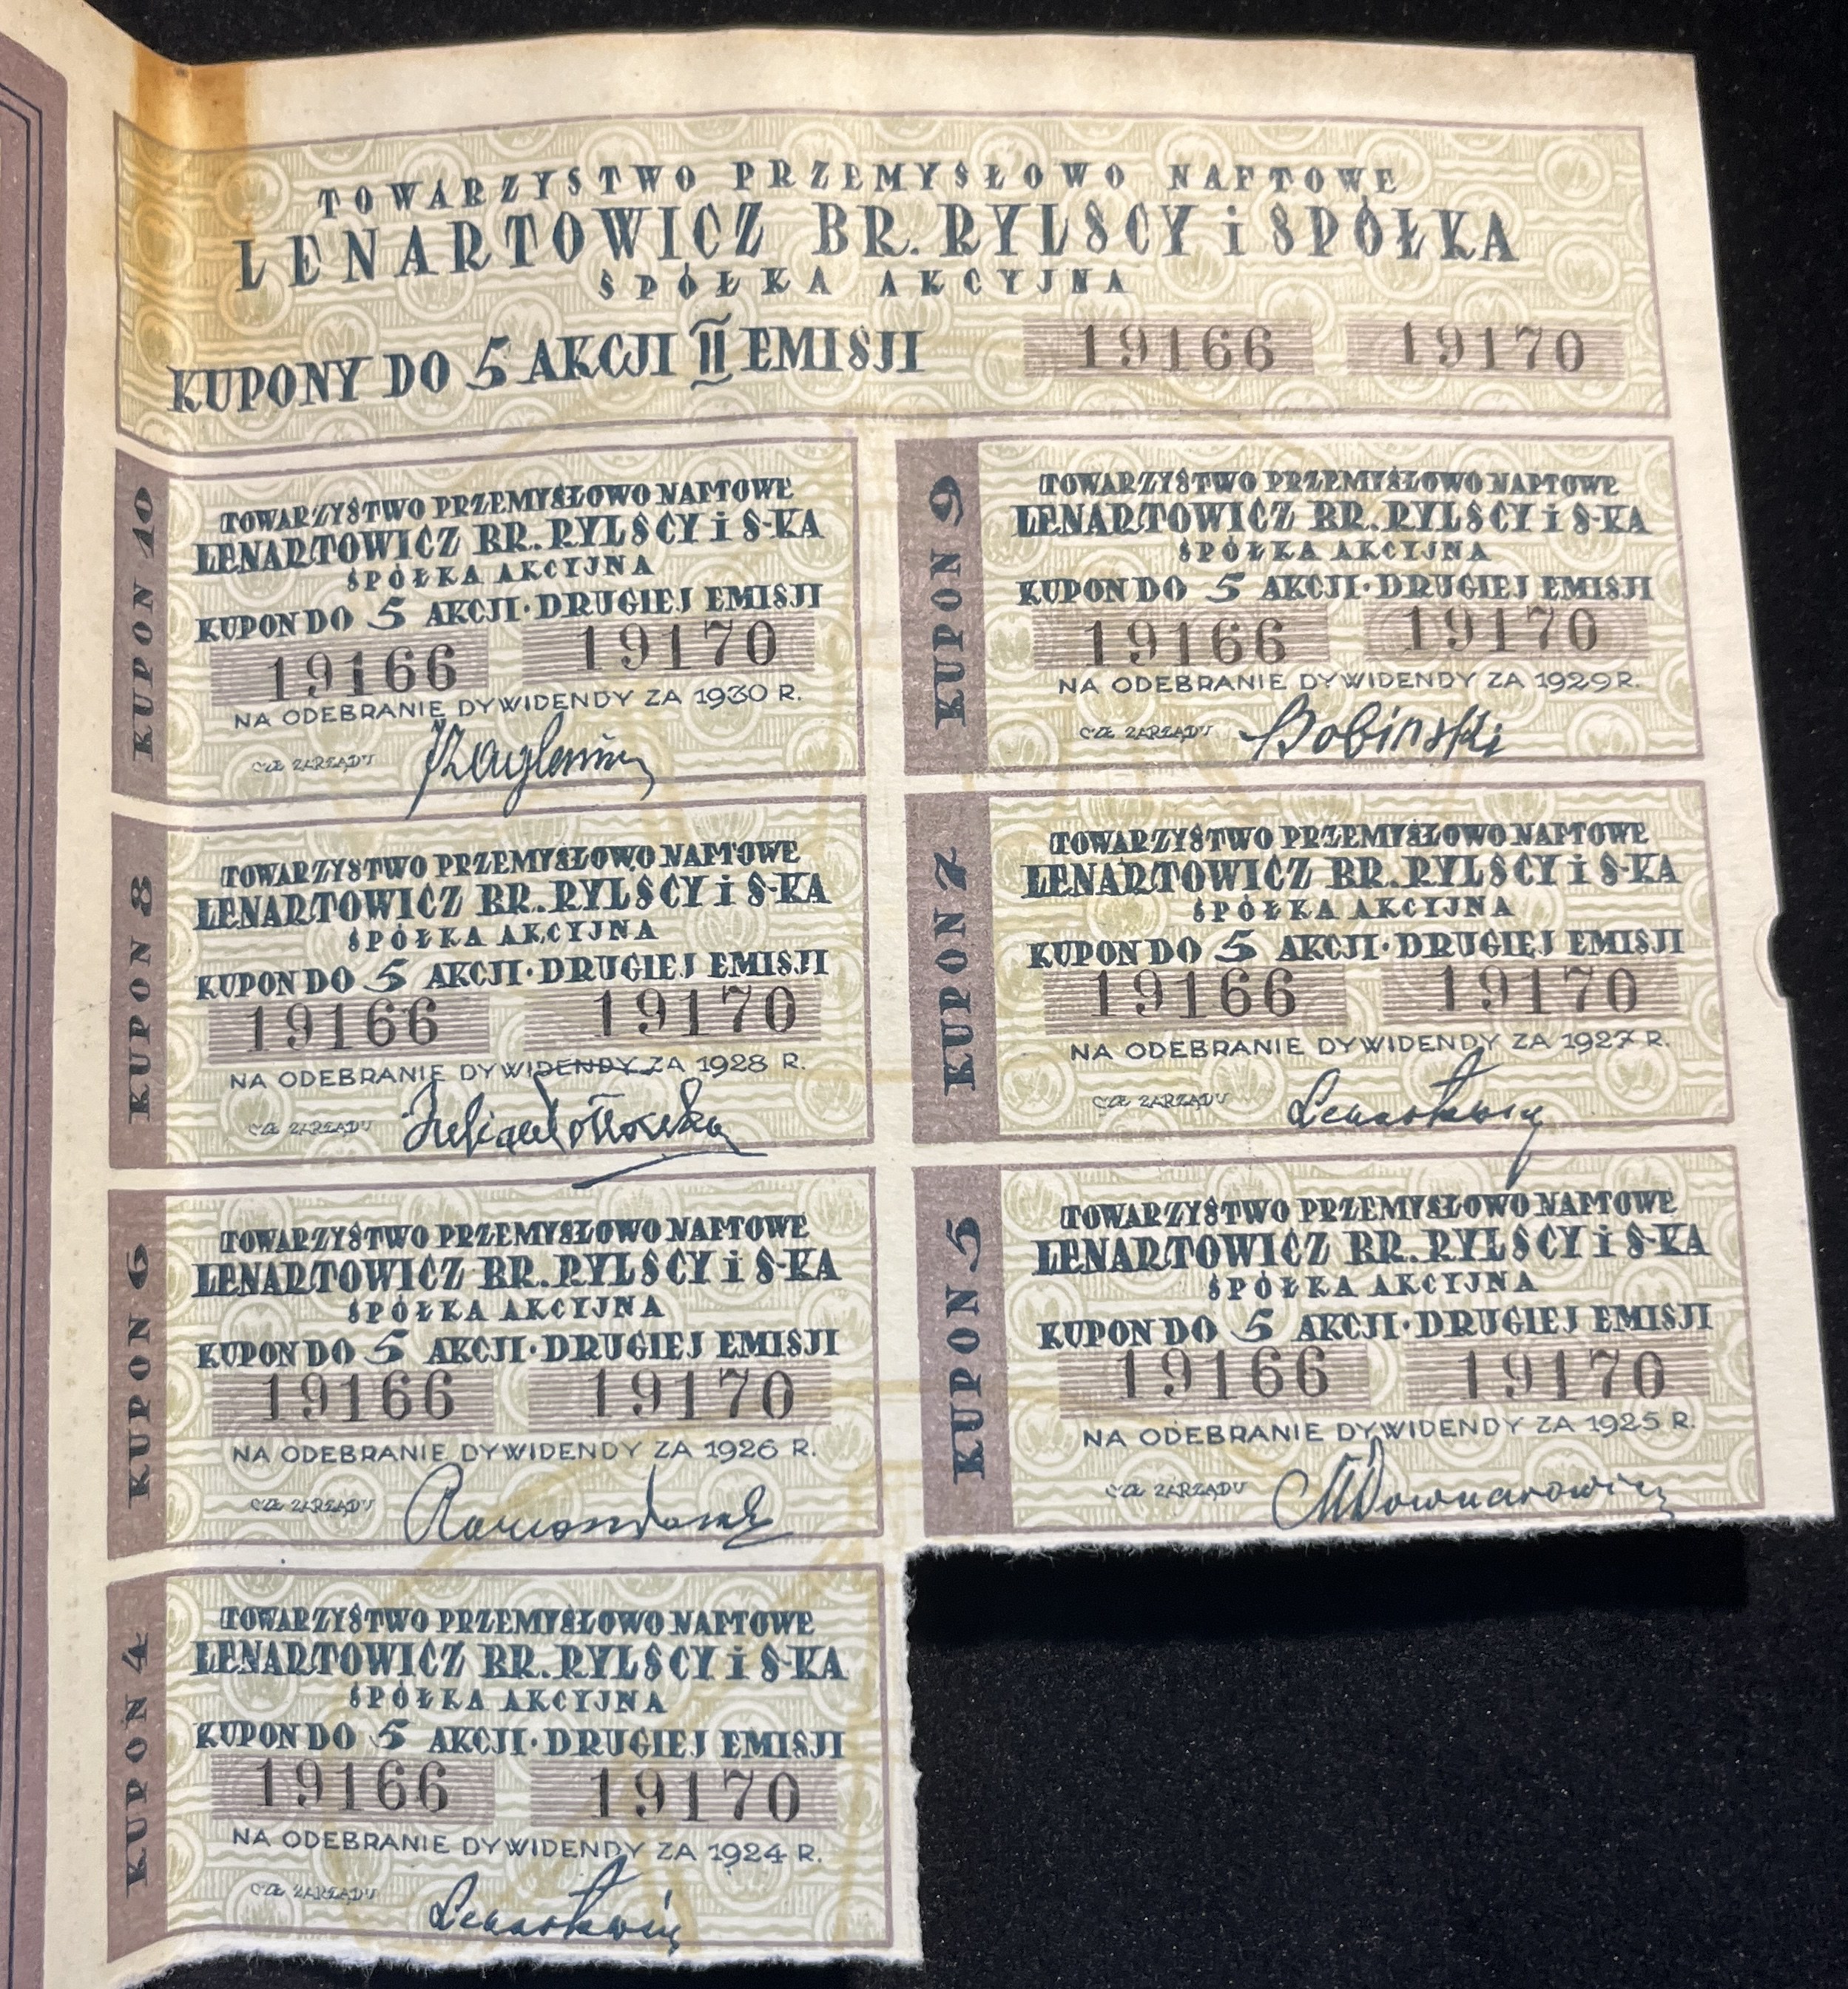 TOWARZYSTWO PRZEMYSŁOWO NAFTOWE
LENARTOWICZ BR. RYLSCY i SPÓŁKA
SPÓŁKA AKCYJNA
KUPONY DO 5 AKCJI II EMISJI 19166 19170
KUPON 10
TOWARZYSTWO PRZEMYSŁOWO NAFTOWE
LENARTOWICZ BR. RYLSCY i S-KA
SPÓŁKA AKCYJNA
KUPON DO 5 AKCJI · DRUGIEJ EMISJI
19166 19170
NA ODEBRANIE DYWIDENDY ZA 1930 R.
CZŁ. ZARZĄDU
KUPON 9
TOWARZYSTWO PRZEMYSŁOWO NAFTOWE
LENARTOWICZ BR. RYLSCY i S-KA
SPÓŁKA AKCYJNA
KUPON DO 5 AKCJI · DRUGIEJ EMISJI
19166 19170
NA ODEBRANIE DYWIDENDY ZA 1929 R.
CZŁ. ZARZĄDU Bobiński
KUPON 8
TOWARZYSTWO PRZEMYSŁOWO NAFTOWE
LENARTOWICZ BR. RYLSCY i S-KA
SPÓŁKA AKCYJNA
KUPON DO 5 AKCJI · DRUGIEJ EMISJI
19166 19170
NA ODEBRANIE DYWIDENDY ZA 1928 R.
CZŁ. ZARZĄDU
KUPON 7
TOWARZYSTWO PRZEMYSŁOWO NAFTOWE
LENARTOWICZ BR. RYLSCY i S-KA
SPÓŁKA AKCYJNA
KUPON DO 5 AKCJI · DRUGIEJ EMISJI
19166 19170
NA ODEBRANIE DYWIDENDY ZA 1927 R.
CZŁ. ZARZĄDU Lenartowicz
KUPON 6
TOWARZYSTWO PRZEMYSŁOWO NAFTOWE
LENARTOWICZ BR. RYLSCY i S-KA
SPÓŁKA AKCYJNA
KUPON DO 5 AKCJI · DRUGIEJ EMISJI
19166 19170
NA ODEBRANIE DYWIDENDY ZA 1926 R.
CZŁ. ZARZĄDU
KUPON 5
TOWARZYSTWO PRZEMYSŁOWO NAFTOWE
LENARTOWICZ BR. RYLSCY i S-KA
SPÓŁKA AKCYJNA
KUPON DO 5 AKCJI · DRUGIEJ EMISJI
19166 19170
NA ODEBRANIE DYWIDENDY ZA 1925 R.
CZŁ. ZARZĄDU MDownarowicz
KUPON 4
TOWARZYSTWO PRZEMYSŁOWO NAFTOWE
LENARTOWICZ BR. RYLSCY i S-KA
SPÓŁKA AKCYJNA
KUPON DO 5 AKCJI · DRUGIEJ EMISJI
19166 19170
NA ODEBRANIE DYWIDENDY ZA 1924 R.
CZŁ. ZARZĄDU Lenartowicz